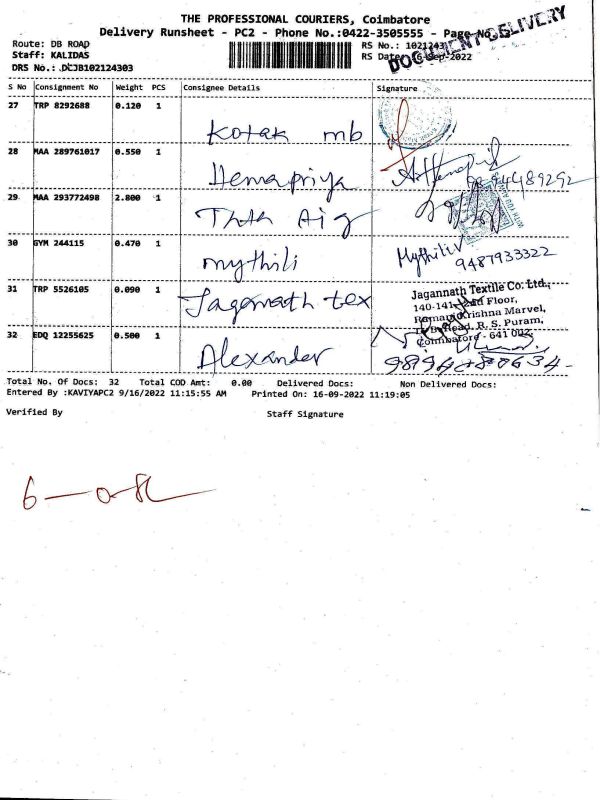 THE PROFESSIONAL COURIERS, Coimbatore
Delivery Runsheet - PC2 - Phone No.:0422-3505555 - Page No
DOCUMENT DELIVERY
Route: DB ROAD
RS No.: 1021243
Staff: KALIDAS
RS Date: 16-Sep-2022
DRS No.: DCJB102124303
S No Consignment No Weight PCS Consignee Details Signature
27 TRP 8292688 0.120 1
Kotak mb
28 MAA 289761017 0.550 1
Hemapriya
29 MAA 293772498 2.800 1
30 GYM 244115 0.470 1
mythili Mythili
9487933322
31 TRP 5526105 0.090 1
Jagannath tex
Jagannath Textile Co. Ltd.,
140-141, 2nd Floor,
Ramani Krishna Marvel,
R. S. Puram,
Coimbatore - 641 002
32 EDQ 12255625 0.500 1
Alexander
Total No. Of Docs: 32 Total COD Amt: 0.00 Delivered Docs: Non Delivered Docs:
Entered By :KAVIYAPC2 9/16/2022 11:15:55 AM Printed On: 16-09-2022 11:19:05
Verified By Staff Signature